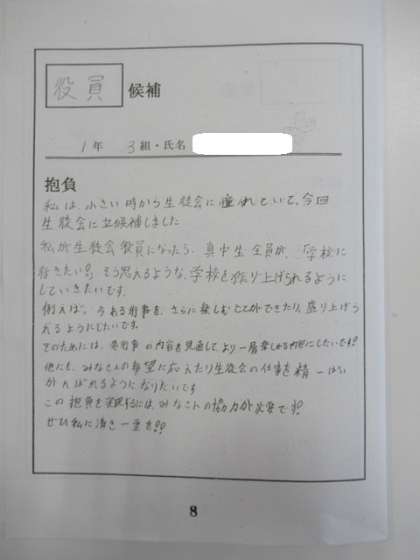 役員 候補
1年 3組・氏名
抱負
私は、小さい時から生徒会に憧れていて、今回
生徒会に立候補しました
私が生徒会役員になったら、真中生全員が、「学校に
行きたい!」そう思えるような、学校を作り上げられるように
していきたいです。
例えば、今ある行事を、さらに楽しむことができたり、盛り上げら
れるようにしたいです。
そのためには、各行事の内容を見直して、より一層楽しめる内容にしたいです!
他にも、みなさんの希望に応えたり生徒会の仕事を精一ぱい
がんばれるようになりたいです
この抱負を実現するには、みなさんの協力が必要です!
ぜひ私に清き一票を!!
8